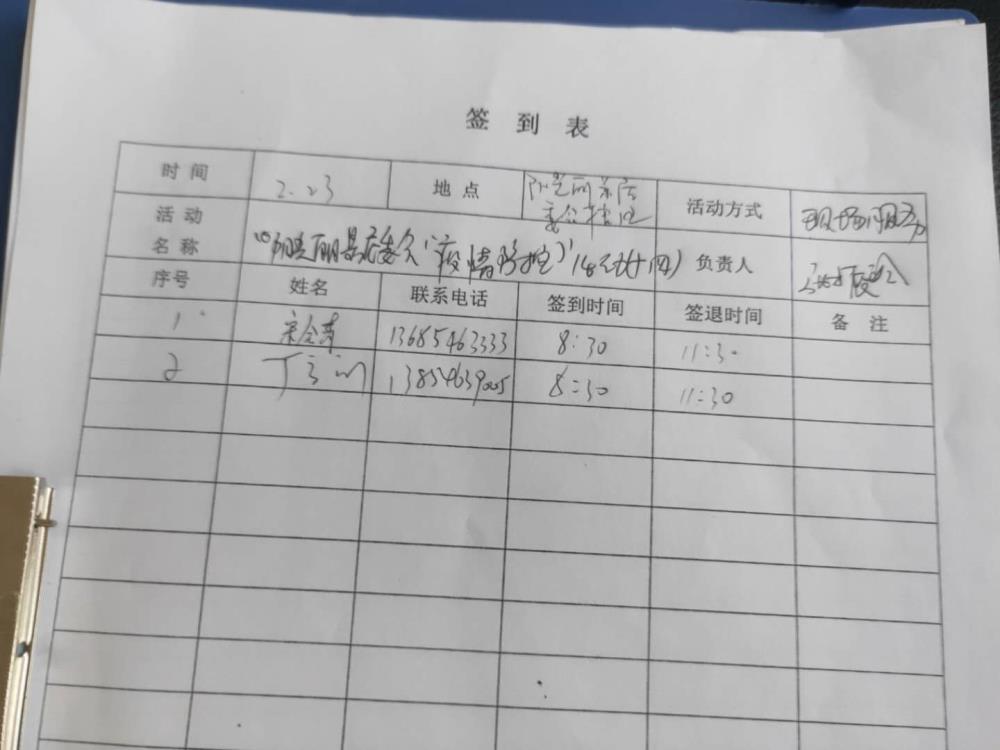 签到表
时间 2.23 地点 阳光丽景居 活动方式 现场
委会
活动
名称 阳光丽景居委会"疫情防控" 负责人
序号 姓名 联系电话 签到时间 签退时间 备注
1 13685463333 8:30 11:30
2 丁 13854639005 8:30 11:30